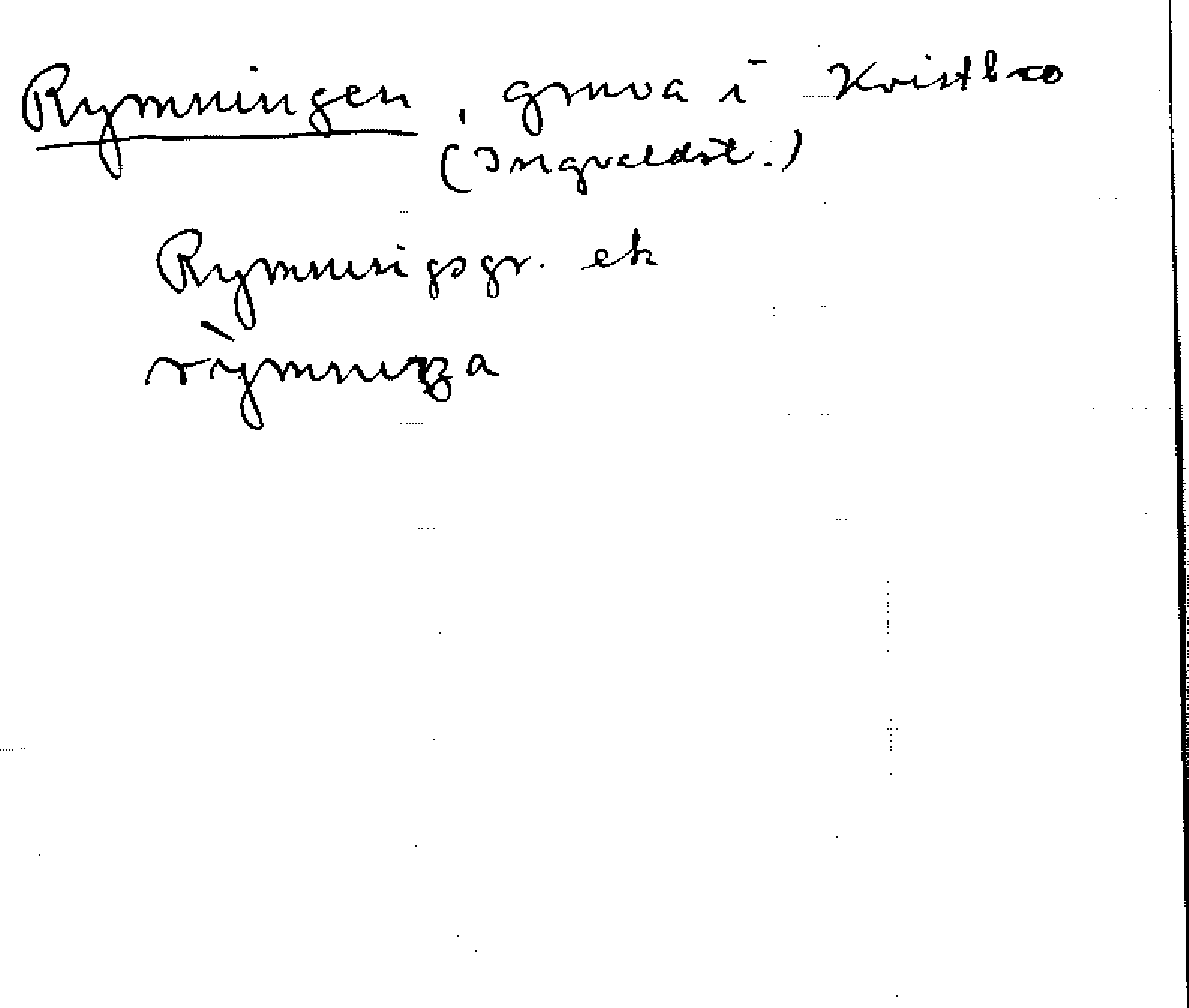 Rymningen, gruva i Kvistbro
(Ingvaldst.)
Rymningsgr. ek
rỳmniŋa